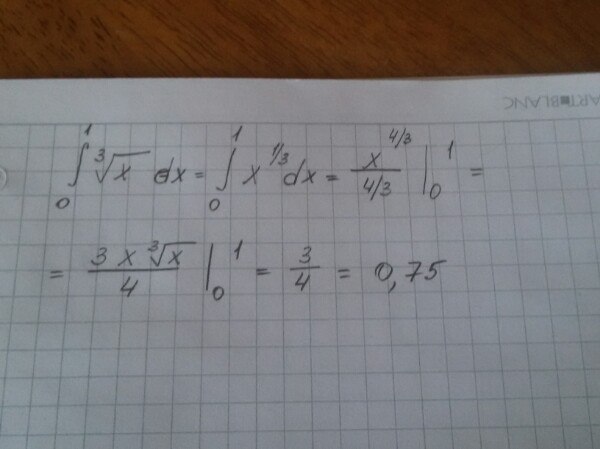 ART■BLANC
∫₀¹ ∛x dx = ∫₀¹ x^1/3 dx = x^4/3 / 4/3 |₀¹ =
= 3x∛x / 4 |₀¹ = 3/4 = 0,75